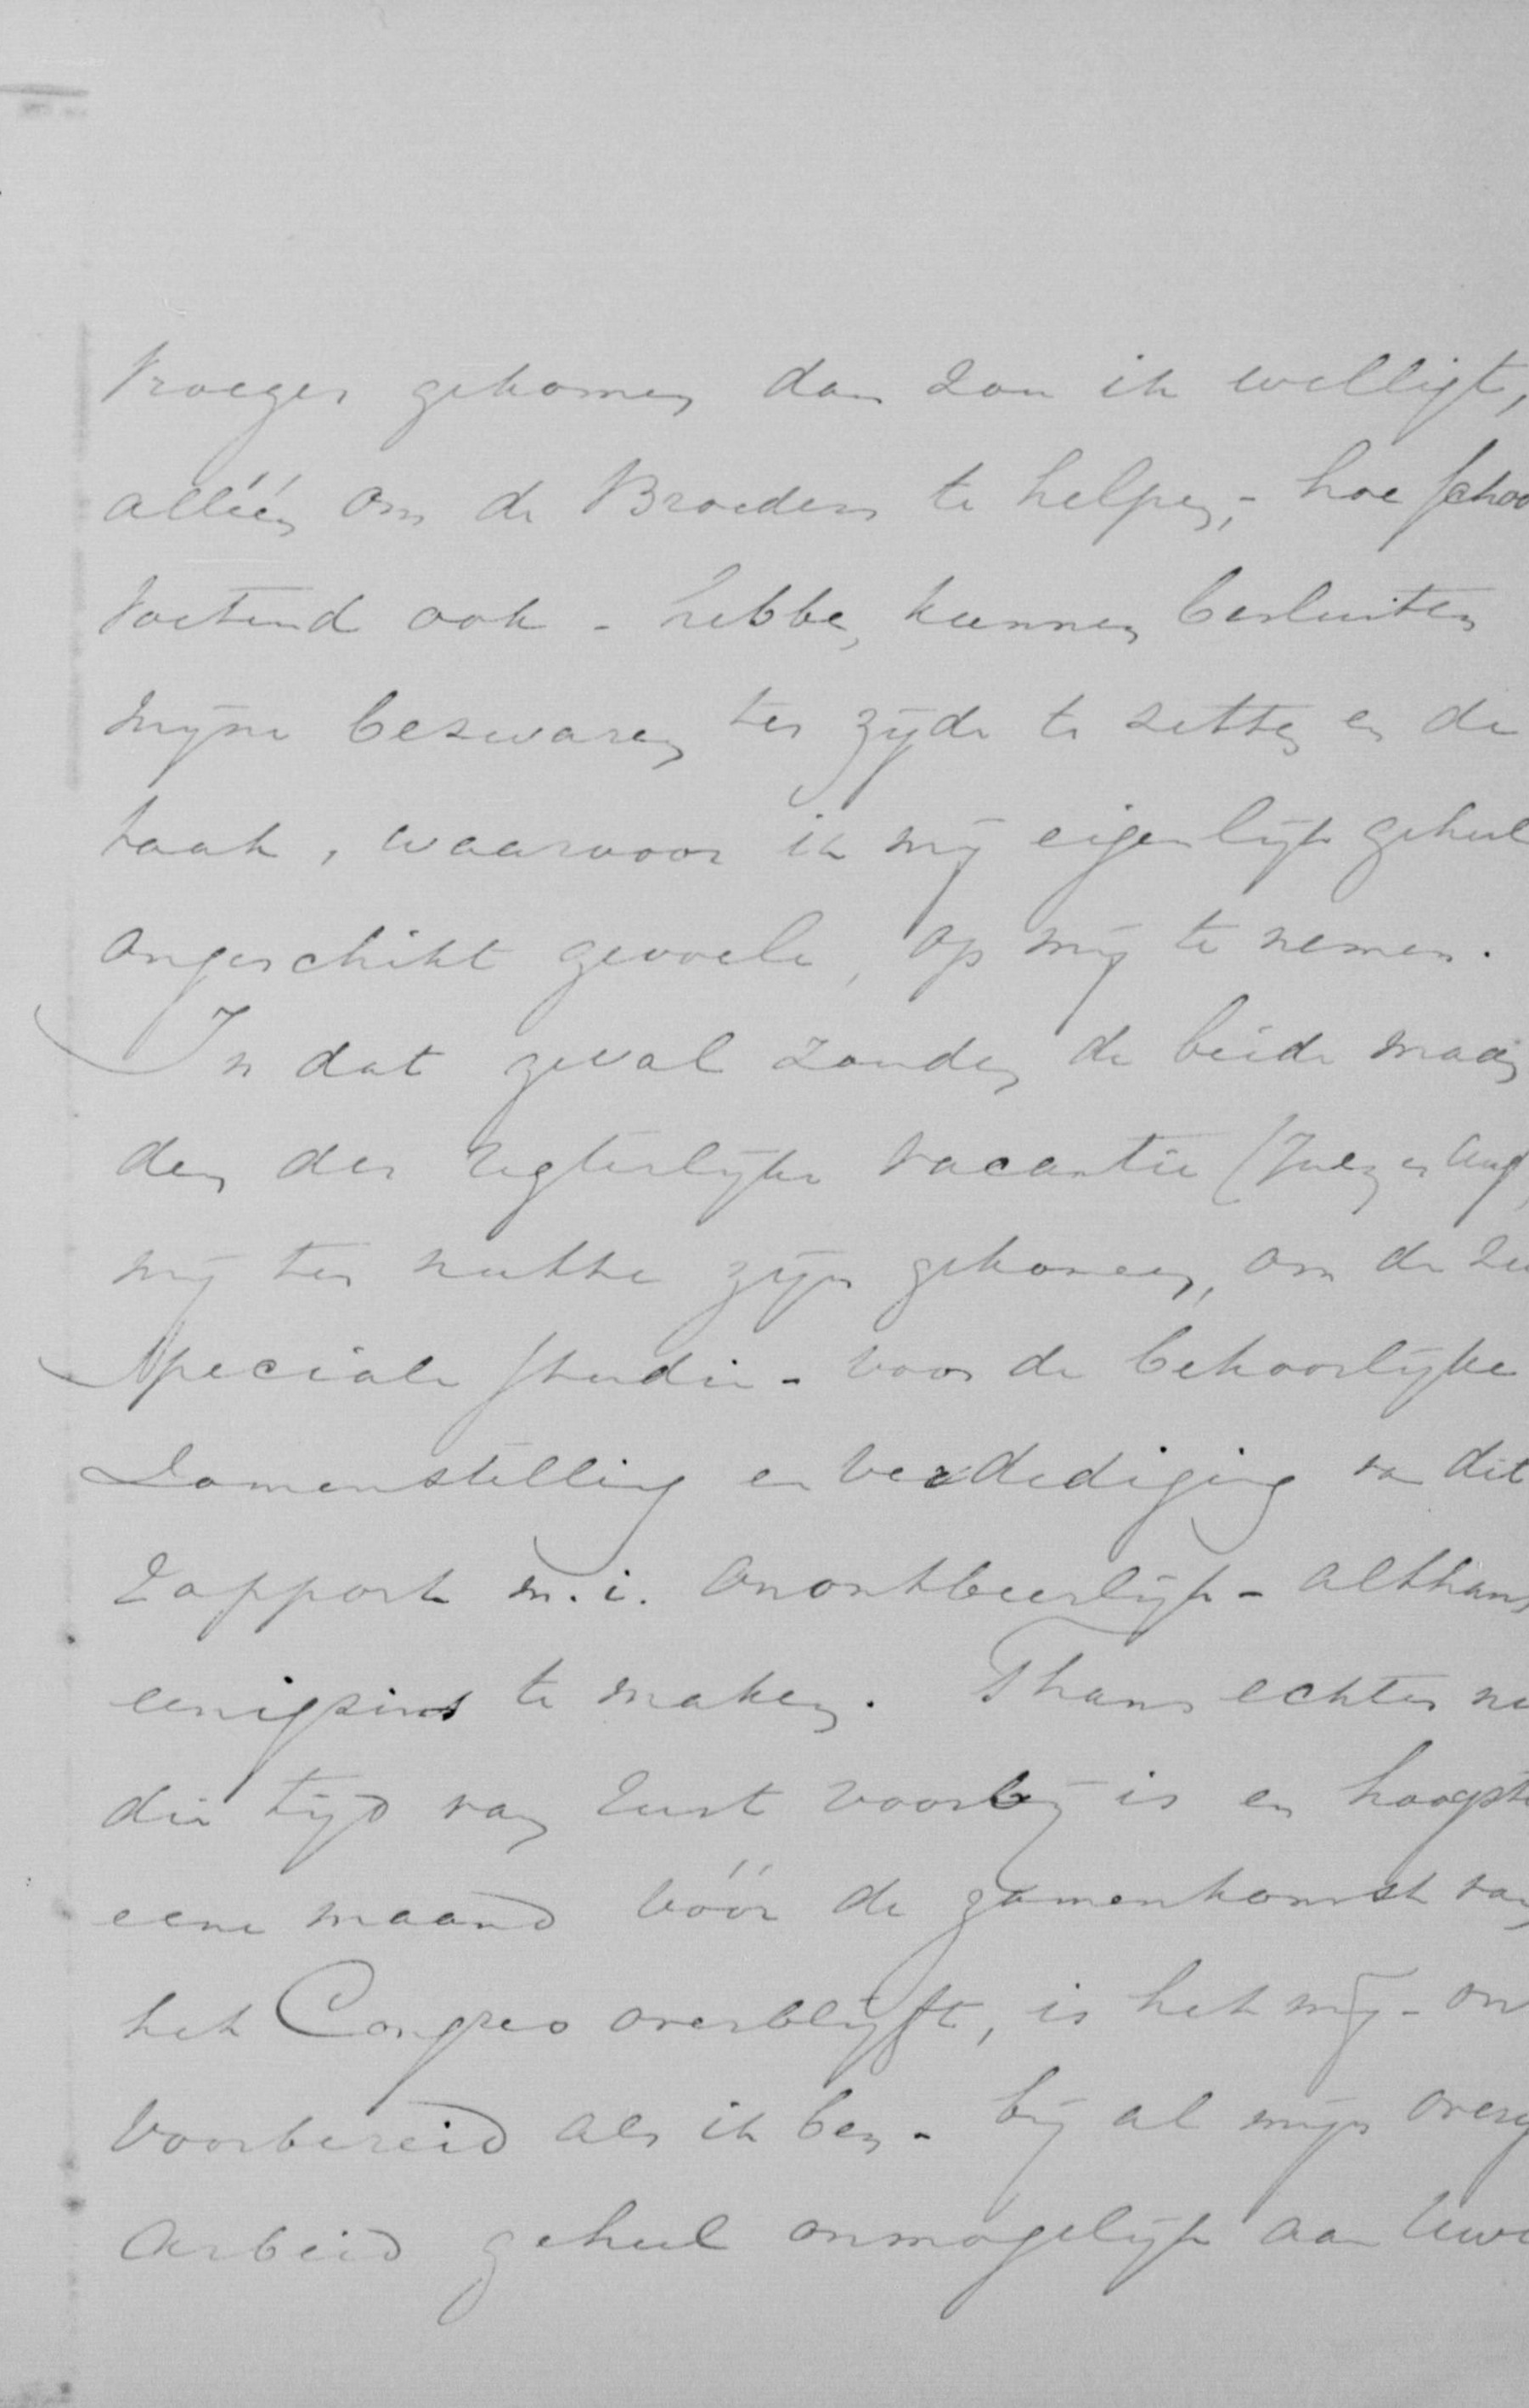 vroeger gekomen dan zou ik welligt,
alléén om de Broeders te helpen, - hoe schoo
voetend ook - hebben kunnen besluiten
mijne bezwaren ter zijde te zetten en de
taak, waarvoor ik mij eigenlijk geheel
ongeschikt gevoele, op mij te nemen.
In dat geval zouden de beide maan
den der regterlijke vacantie (July en Aug
mij ten nutte zijn gekomen, om de
speciale studie - voor de behoorlijke
zamenstelling en verdediging van dit
rapport m.i. onontbeerlijk - althans
eenigzins te maken. Thans echter nu
die tijd van rust voorbij is en hoogste
eene maand vóór de zamenkomst van
het Congres overblijft, is het mij - on
voorbereid als ik ben - bij al mijn overig
arbeid geheel onmogelijk aan Uwe